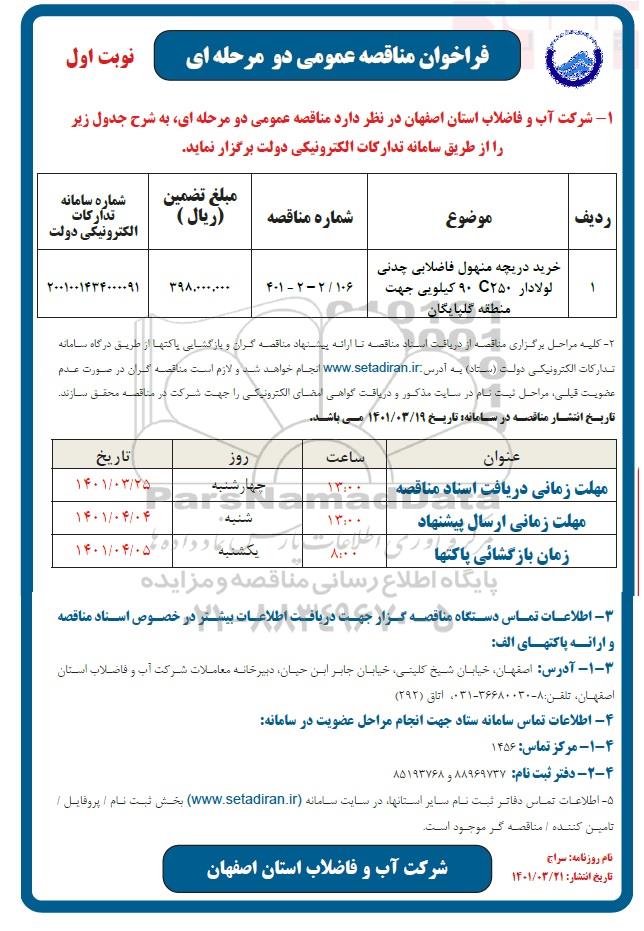 فراخوان مناقصه عمومی دو مرحله ای
نوبت اول
۱- شرکت آب و فاضلاب استان اصفهان در نظر دارد مناقصه عمومی دو مرحله ای، به شرح جدول زیر
را از طریق سامانه تدارکات الکترونیکی دولت برگزار نماید.
ردیف
موضوع
شماره مناقصه
مبلغ تضمین
(ریال)
شماره سامانه
تدارکات
الکترونیکی دولت
۱
خرید دریچه منهول فاضلابی چدنی
لولادار C۲۵۰ ۹۰ کیلویی جهت
منطقه گلپایگان
۴۰۱ - ۲ - ۲ / ۱۰۶
۳۹۸.۰۰۰.۰۰۰
۲۰۰۱۰۰۱۴۳۴۰۰۰۰۹۱
۲- کلیه مراحل برگزاری مناقصه از دریافت اسناد مناقصه تا ارائه پیشنهاد مناقصه گران و بازگشایی پاکتها از طریق درگاه سامانه
تدارکات الکترونیکی دولت (ستاد) به آدرس: www.setadiran.ir انجام خواهد شد و لازم است مناقصه گران در صورت عدم
عضویت قبلی، مراحل ثبت نام در سایت مذکور و دریافت گواهی امضای الکترونیکی را جهت شرکت در مناقصه محقق سازند.
تاریخ انتشار مناقصه در سامانه: تاریخ ۱۴۰۱/۰۳/۱۹ می باشد.
عنوان ساعت روز تاریخ
مهلت زمانی دریافت اسناد مناقصه ۱۳:۰۰ چهارشنبه ۱۴۰۱/۰۳/۲۵
مهلت زمانی ارسال پیشنهاد ۱۳:۰۰ شنبه ۱۴۰۱/۰۴/۰۴
زمان بازگشائی پاکتها ۸:۰۰ یکشنبه ۱۴۰۱/۰۴/۰۵
ParsNamadData
مرکز فرآوری اطلاعات پارس نماد داده ها
پایگاه اطلاع رسانی مناقصه و مزایده
۰۲۱-۸۸۳۴۹۶۷۰-۵
۳- اطلاعات تماس دستگاه مناقصه گزار جهت دریافت اطلاعات بیشتر در خصوص اسناد مناقصه
و ارائه پاکتهای الف:
۳-۱- آدرس: اصفهان، خیابان شیخ کلینی، خیابان جابر ابن حیان، دبیرخانه معاملات شرکت آب و فاضلاب استان
اصفهان، تلفن:۸-۳۶۶۸۰۰۳۰-۰۳۱، اتاق (۲۹۲)
۴- اطلاعات تماس سامانه ستاد جهت انجام مراحل عضویت در سامانه:
۴-۱- مرکز تماس: ۱۴۵۶
۴-۲- دفتر ثبت نام: ۸۸۹۶۹۷۳۷ و ۸۵۱۹۳۷۶۸
۵- اطلاعات تماس دفاتر ثبت نام سایر استانها، در سایت سامانه (www.setadiran.ir) بخش ثبت نام / پروفایل /
تامین کننده / مناقصه گر موجود است.
نام روزنامه: سراج
تاریخ انتشار: ۱۴۰۱/۰۳/۲۱
شرکت آب و فاضلاب استان اصفهان